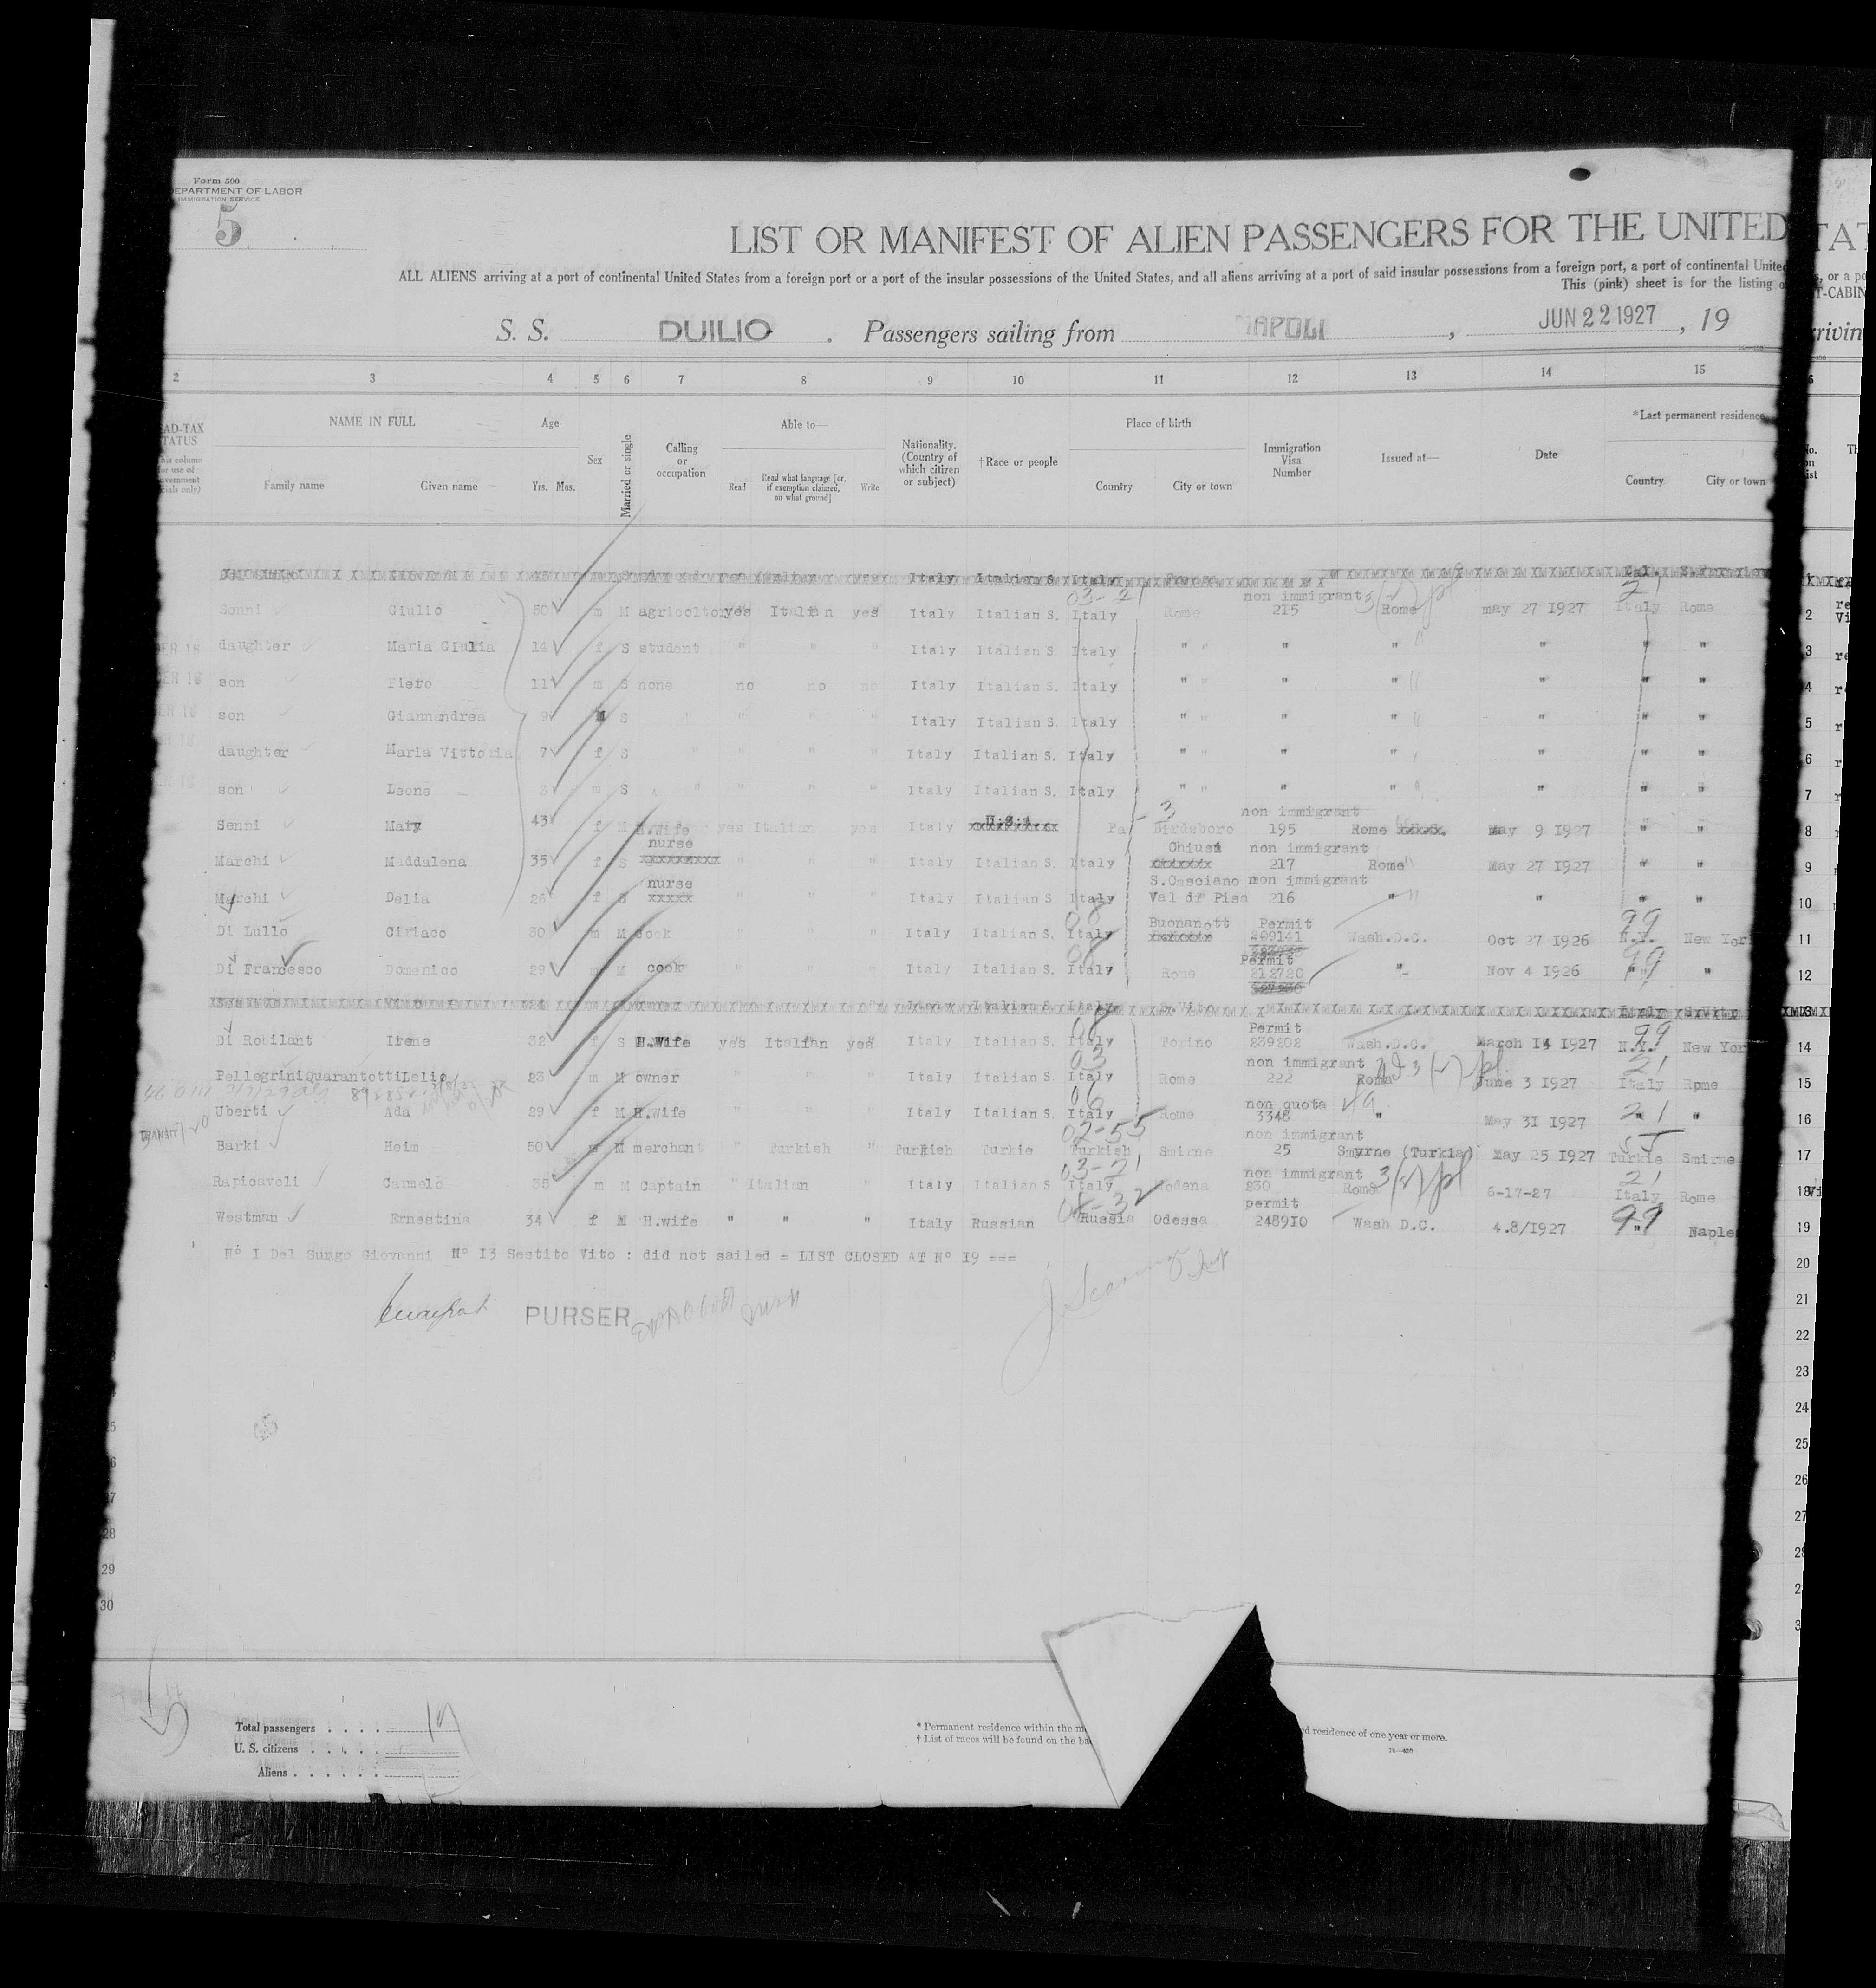 Form 500
DEPARTMENT OF LABOR
IMMIGRATION SERVICE
5
LIST OR MANIFEST OF ALIEN PASSENGERS FOR THE UNITED
ALL ALIENS arriving at a port of continental United States from a foreign port or a port of the insular possessions of the United States, and all aliens arriving at a port of said insular possessions from a foreign port, a port of continental United
This (pink) sheet is for the listing
S. S. DUILIO . Passengers sailing from NAPOLI , JUN 22 1927 , 19
2 3 4 5 6 7 8 9 10 11 12 13 14 15
NAME IN FULL Age Sex Married or single Calling or occupation Able to— Nationality. (Country of which citizen or subject) † Race or people Place of birth Immigration Visa Number Issued at— Date * Last permanent residence
Family name Given name Yrs. Mos. Read Read what language [or, if exemption claimed, on what ground] Write Country City or town Country City or town
non immigrant
Senni Giulio 50 m M agricoltor yes Italian yes Italy Italian S. Italy Rome 215 Rome may 27 1927 Italy Rome 2
daughter Maria Giulia 14 f S student " " " Italy Italian S Italy " " " " " " " 3
son Piero 11 m S none no no no Italy Italian S. Italy " " " " " " " 4
son Giannandrea 9 M S " " " " Italy Italian S. Italy " " " " " " " 5
daughter Maria Vittoria 7 f S " " " " Italy Italian S. Italy " " " " " " " 6
son Leone 3 m S " " " " Italy Italian S. Italy " " " " " " " 7
U.S.A. non immigrant
Senni Mary 43 f M H.Wife yes Italian yes Italy Pa Birdsboro 195 Rome May 9 1927 " " 8
nurse Chiusi non immigrant
Marchi Maddalena 35 f S " " " Italy Italian S. Italy 217 Rome May 27 1927 " " 9
nurse S.Casciano non immigrant
Marchi Delia 26 f S " " " Italy Italian S Italy Val di Pisa 216 " " " " 10
Buonanott Permit
Di Lullo Ciriaco 30 m M cook " " " Italy Italian S. Italy 209141 Wash.D.C. Oct 27 1926 N.Y. New Yor 11
Permit
Di Francesco Domenico 29 m M cook " " " Italy Italian S. Italy Rome 212720 " Nov 4 1926 " " 12
Permit
Di Robilant Irene 32 f S H.Wife yes Italian yes Italy Italian S. Italy Torino 239202 Wash.D.C. March 14 1927 N.Y. New Yor 14
non immigrant
PellegriniQuarantotti Lelio 23 m M owner " " " Italy Italian S. Italy Rome 222 Rome June 3 1927 Italy Rome 15
non quota
Uberti Ada 29 f M H.Wife " " " Italy Italian S. Italy Rome 3348 " May 31 1927 " " 16
TRANSIT non immigrant
Barki Heim 50 m M merchant " Turkish " Turkish Turkie Turkish Smirne 25 Smyrne (Turkia) May 25 1927 Turkie Smirne 17
non immigrant
Rapicavoli Carmelo 35 m M Captain " Italian " Italy Italian S Italy Modena 230 Rome 6-17-27 Italy Rome 18
permit
Westman Ernestina 34 f M H.wife " " " Italy Russian Russia Odessa 248910 Wash D.C. 4.8/1927 " Naple 19
Nº I Del Sungo Giovanni Nº I3 Sestito Vito : did not sailed = LIST CLOSED AT Nº I9 ===
20
PURSER
21
22
23
24
25
26
27
28
29
30
Total passengers . . . . 19
U. S. citizens . . . . .
Aliens . . . . . .
* Permanent residence within the
residence of one year or more.
† List of races will be found on the